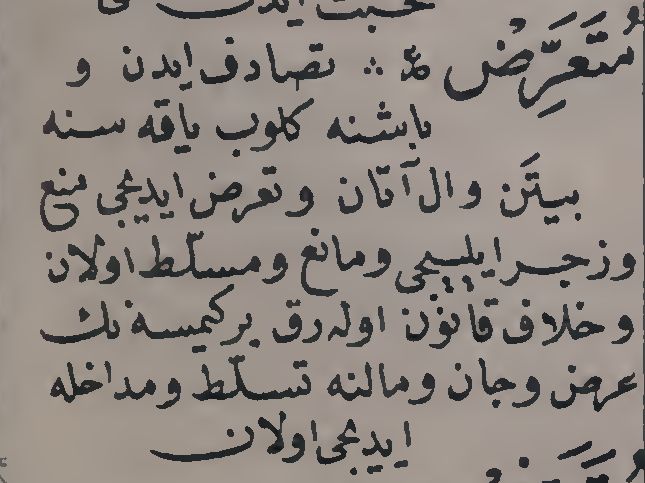 مُتَعَرِّض ع ∴ تصادف ایدن و
باشنه كلوب یاقه سنه
بیتَن و ال آتان و تعرض ایدیجی منع
و زجر ایلییجی و مانع و مسلّط اولان
و خلاف قانون اوله رق بر كیمسه نك
عرض و جان و مالنه تسلّط و مداخله
ایدیجی اولان